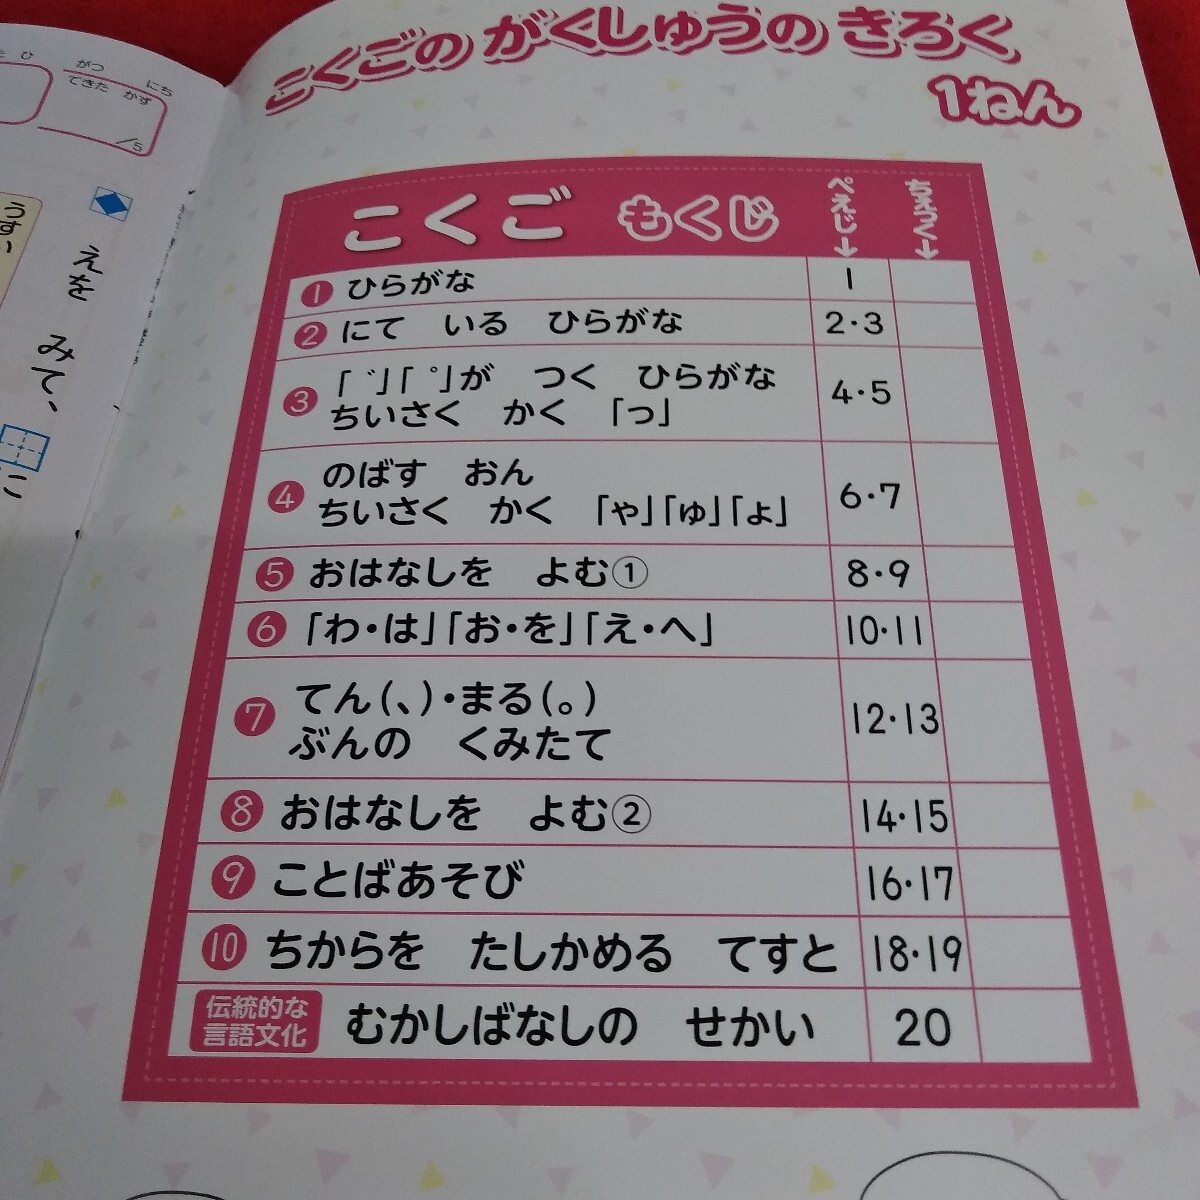 こくごの がくしゅうの きろく
1ねん
こくご もくじ ぺえじ↓ ちぇっく↓
1 ひらがな 1
2 にて いる ひらがな 2・3
3 「゛」「゜」が つく ひらがな
ちいさく かく 「っ」 4・5
4 のばす おん
ちいさく かく 「ゃ」「ゅ」「ょ」 6・7
5 おはなしを よむ① 8・9
6 「わ・は」「お・を」「え・へ」 10・11
7 てん(、)・まる(。)
ぶんの くみたて 12・13
8 おはなしを よむ② 14・15
9 ことばあそび 16・17
10 ちからを たしかめる てすと 18・19
伝統的な
言語文化
むかしばなしの せかい 20
がつ にち
できた かず
/5
えを みて、
に
うすい